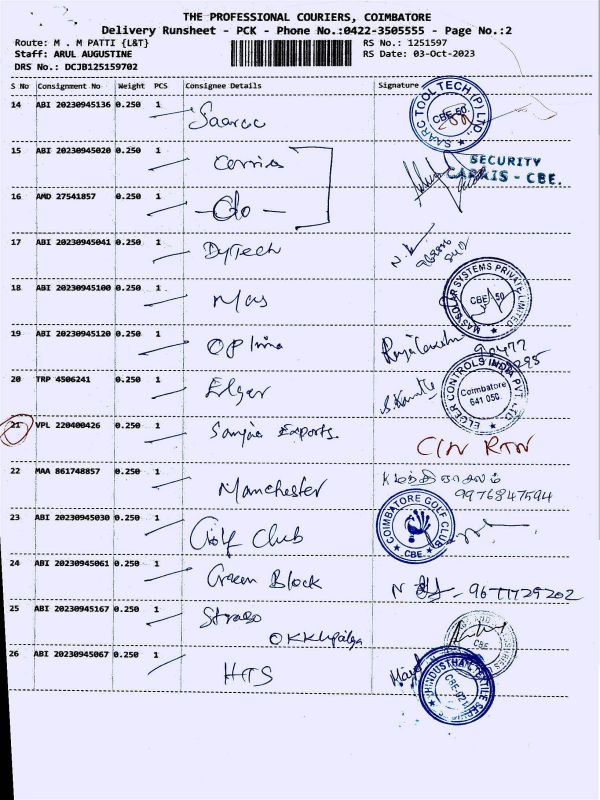 THE PROFESSIONAL COURIERS, COIMBATORE
Delivery Runsheet - PCK - Phone No.:0422-3505555 - Page No.:2
Route: M . M PATTI {L&T} RS No.: 1251597
Staff: ARUL AUGUSTINE RS Date: 03-Oct-2023
DRS No.: DCJB125159702
S No Consignment No Weight PCS Consignee Details Signature
14 ABI 20230945136 0.250 1 Saarcc SAARC TOOL TECH.(P) LTD. CBE-50.
15 ABI 20230945020 0.250 1 SECURITY
CAPAIS - CBE.
16 AMD 27541857 0.250 1
17 ABI 20230945041 0.250 1 DyTech
18 ABI 20230945100 0.250 1 Mas MAS SOLAR SYSTEMS PRIVATE LIMITED CBE 50
19 ABI 20230945120 0.250 1
20 TRP 4506241 0.250 1 Elger ELGER CONTROLS INDIA PVT. LTD. Coimbatore 641 050.
21 VPL 220400426 0.250 1 Sanjae Exports C/N RTN
22 MAA 861748857 0.250 1 Manchester
9976847594
23 ABI 20230945030 0.250 1 Golf Club COIMBATORE GOLF CLUB CBE.
24 ABI 20230945061 0.250 1 Green Block 9677729202
25 ABI 20230945167 0.250 1 CBE
26 ABI 20230945067 0.250 1 HTS HINDUSTHAN TEXTILE